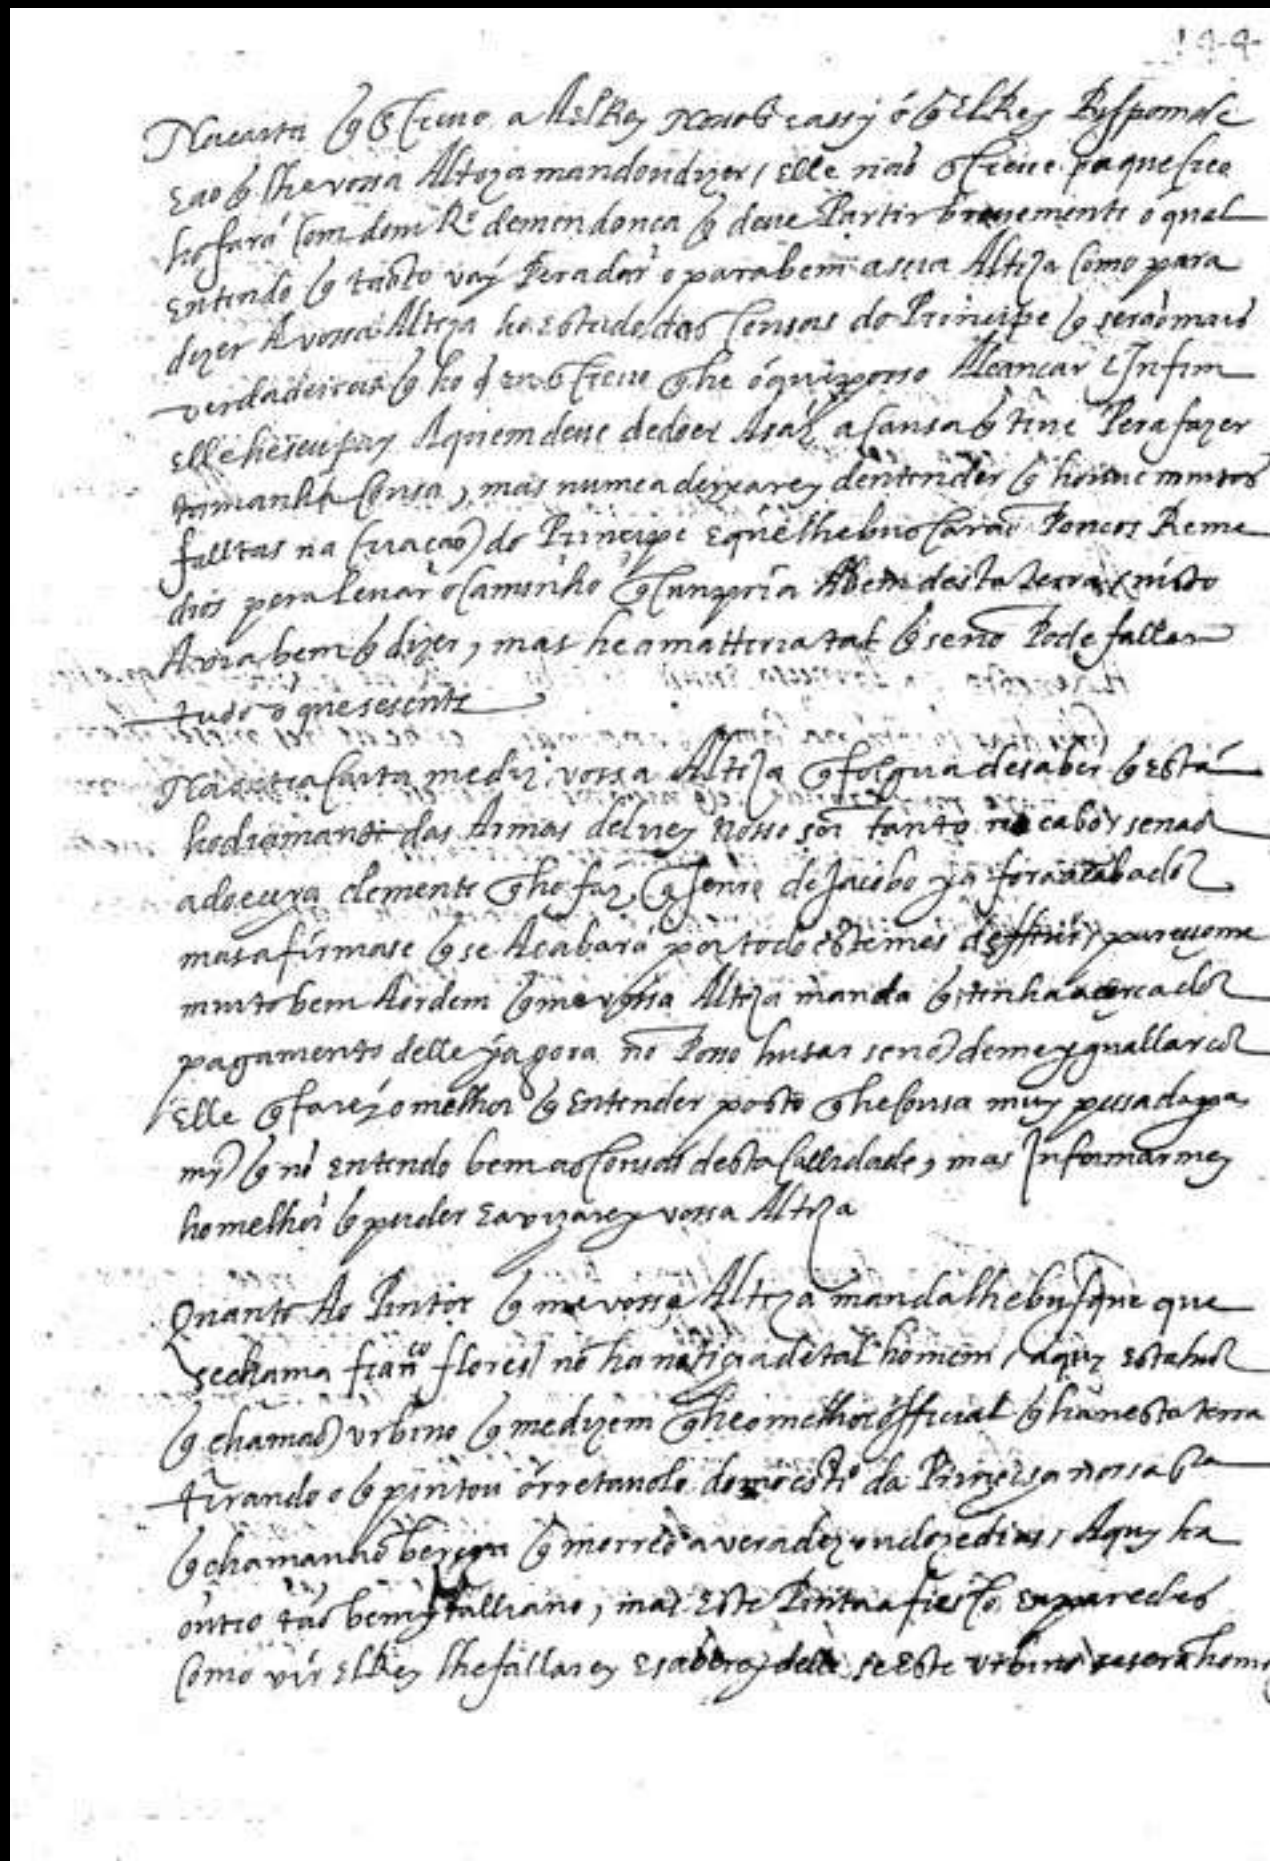 144
Na carta q escrevo a ElRey nosso sr assy o q ElRey Responde
e ao q lhe vossa Alteza mandou dizer, elle não escreve pa que creo
ho fará com dom Ro de mendonça q deve Partir brevemente o qual
Entendo q tãoto vay Pera dar o parabem a seua Alteza como para
dizer A vossa Alteza ho Estado das Cousas do Principe q serão mais
verdadeiras q ho q eu escrevo q he o que posso Alcançar E Infim
elle he seu pay A quem deve de doer Asáz a causa q teve Pera fazer
tamanha Cousa, mas numca deixarey dentender q houve muitos
falltas na criação do Principe e que lhe buscarão Poucos Reme
dios pera levar o Caminho q cumpria Abem desta terra e nisto
Avia bem q dizer, mas he a matteria tal q se no Pode fallar
tudo o que se sente
Na outra Carta me diz vossa Alteza q folgua de saber q está
ho diamante das Armas delrey nosso sor tanto no cabo, senão
adoecera clemente q ho faz q Jenro de Jacobo ya fora acabado
mas afirmase q se Acabará por todo este mes de, pareçeome
muito bem A ordem q me vossa Alteza manda q tenha açerca do
pagamento delle yagora no Posso husar senão de me yguallar co
Elle q farey o melhor q Entender posto q he cousa muy pesada pa
my q no entendo bem as Cousas desta callidade, mas Informarmey
ho melhor q puder e avizarey vossa Alteza
Quanto Ao Pintor q me vossa Alteza manda lhe busque que
se chama franco flores no ha notiçia de tal homem, aquy esta hu
q chamão urbino q me dizem q he o melhor official q ha nesta terra
tirando o q pintou o rretavolo do mosto da Prinçeza nossa sra
q chamavão q morreo averá dez ou doze dias, Aquy ha
outro tão bem ytalliano, mas Este Pinta a fresco em paredes
Como vir ElRey lhe fallarey e saberey delle se Este urbino será home